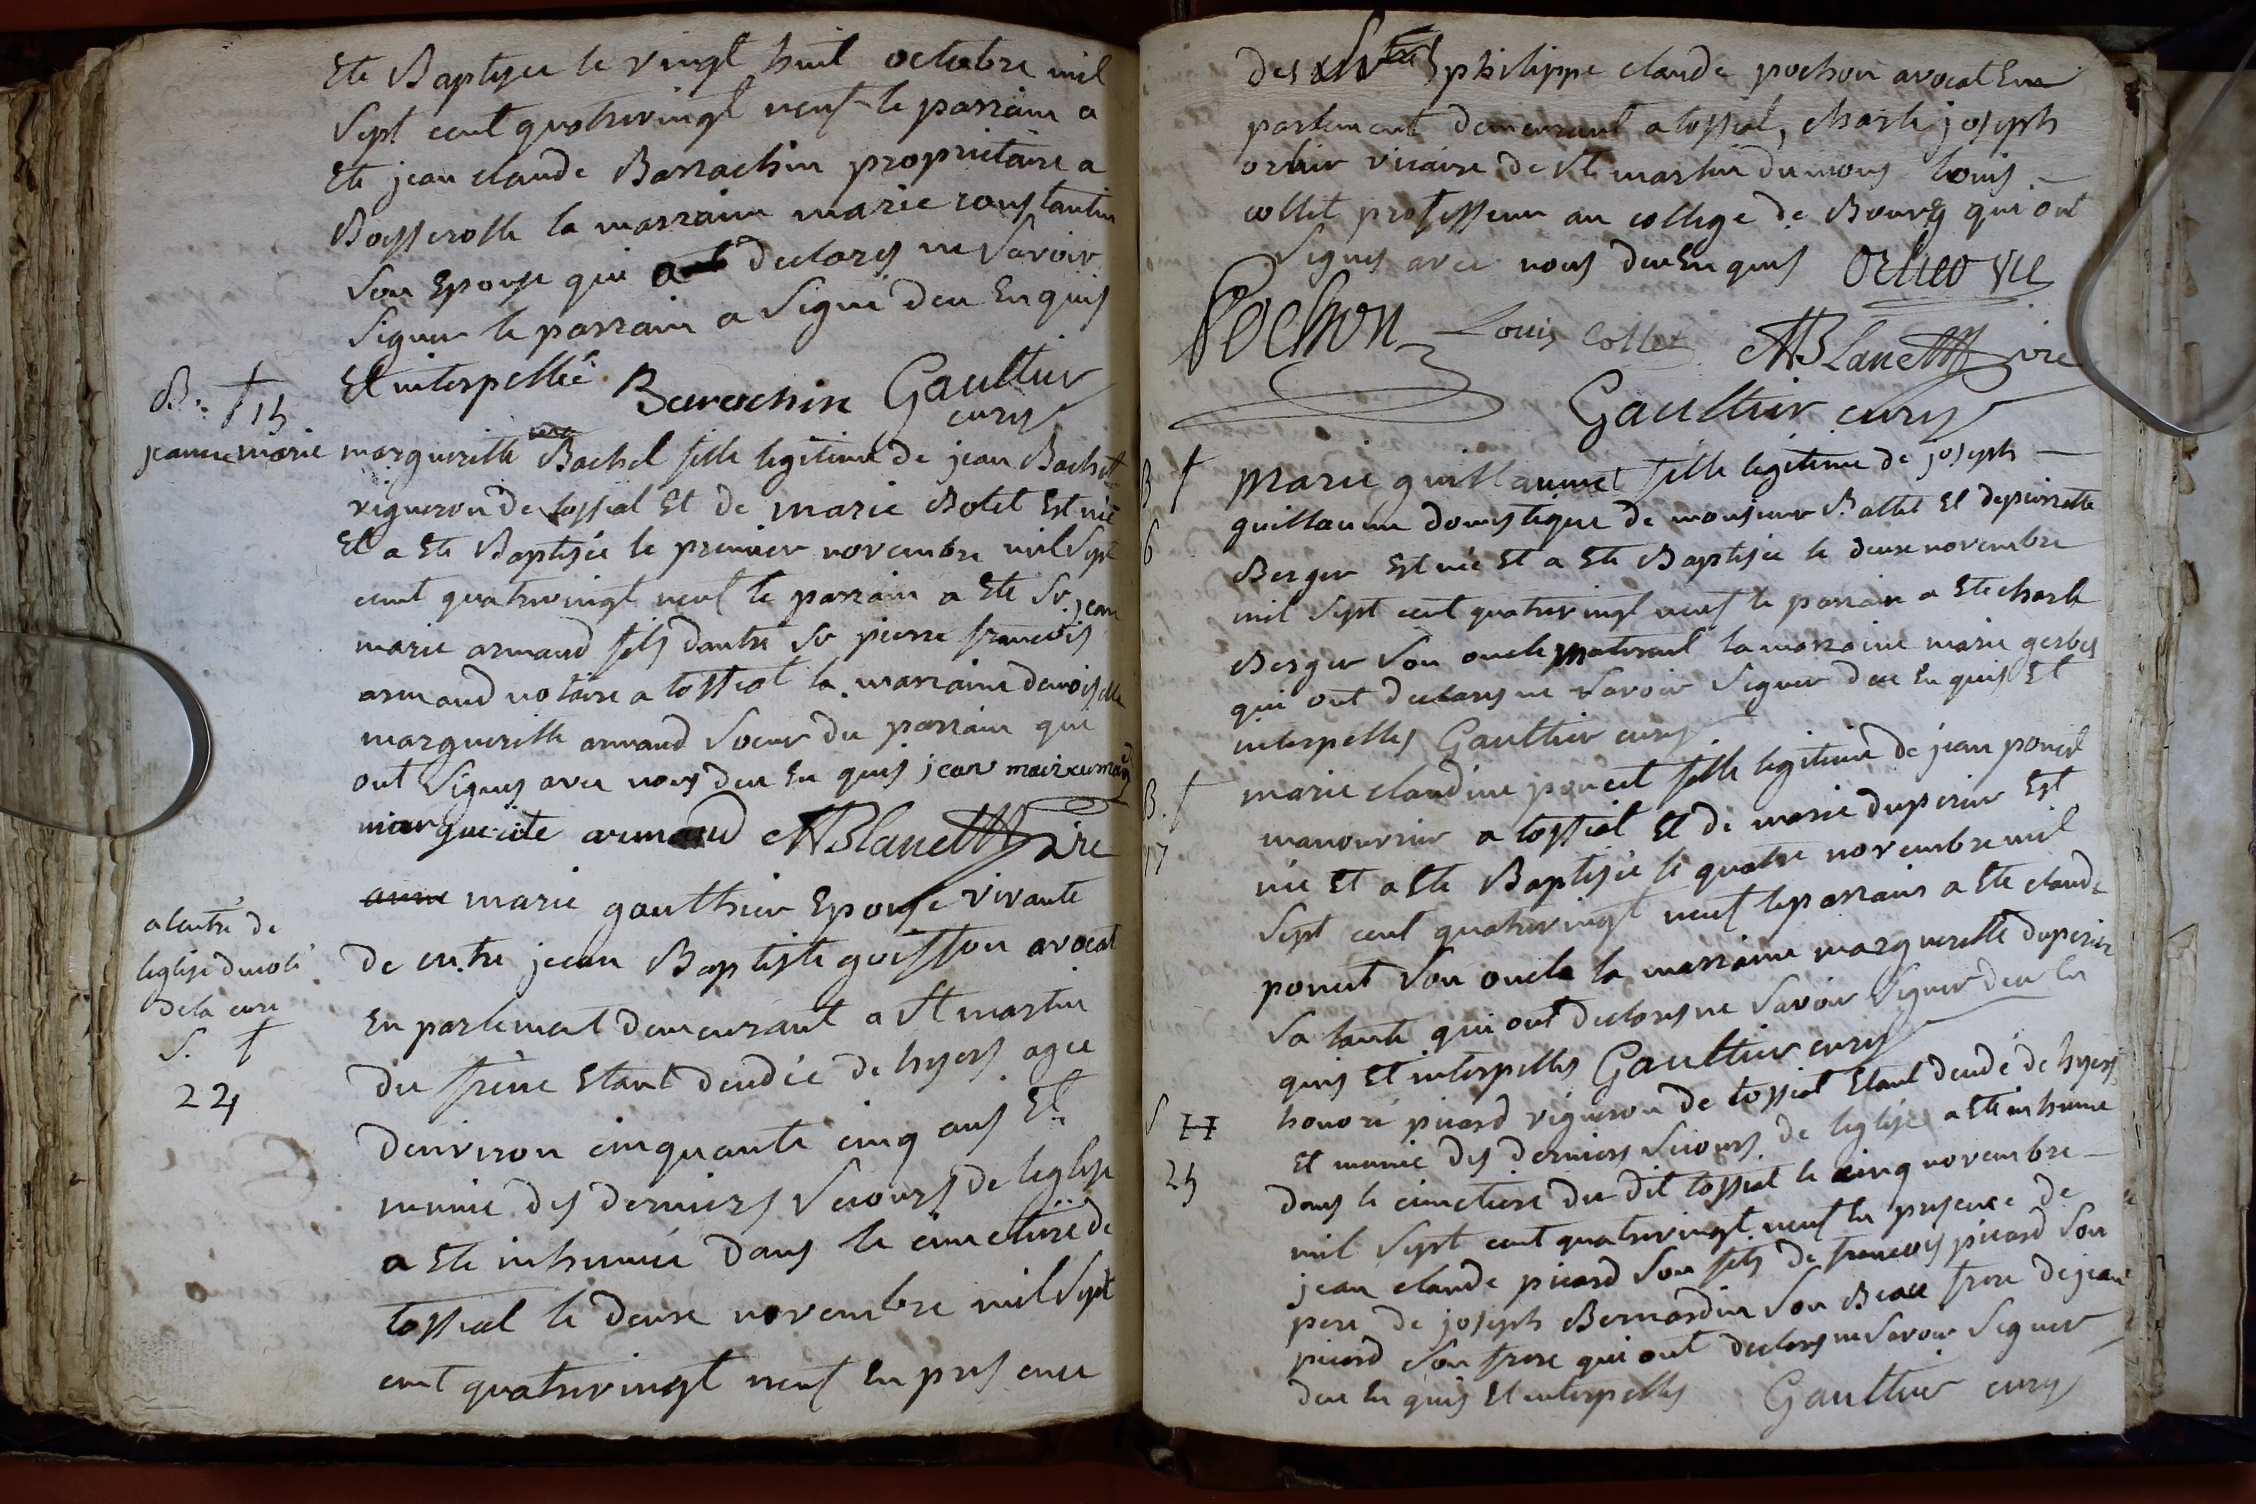 Ete Baptisee le vingt huit octobre mil
Sept cent quatrevingt neuf le parrain a
Ete jean claude Barrachin proprietaire a
la marraine marie constantin
Son Epouse qui declares ne Savoir
Signer le parrain a Signé deu Enquis
Et interpellé Barachin Gaultier
curé
B. † 15
jeanne marie margueritte Bachel fille legitime de jean Bachel
vigneron de tossiat Et de marie Botet Est née
Et a Ete Baptisée le premier novembre mil Sept
cent quatrevingt neuf le parrain a Ete Sr. jean
marie armand fils dautre Sr pierre francois
armand notaire a tossiat la marraine demoiselle
margueritte armand Soeur du parrain qui
ont Signes avec nous deu En quis jean marie armand
marguerite armand Blanc vire
anne marie gauthier Epouse vivante
a lentré de
leglise ducoté
de la cure
S. †
22
de entre jean Baptiste goiffon avocat
En parlement demeurant a St martin
du frene Etant decedée de hyers agee
denviron cinquante cinq ans Et
munie des derniers Secours de leglise
a Ete inhumée dans le cimetiere de
tossiat le deuxe novembre mil Sept
cent quatrevingt neuf En presence
des philippe claude pochon avocat En
parlement demeurant a tossiat, charle joseph
orlier vicaire de St martin du mons louis
collet professeur au college de Bourg qui ont
Signes avec nous deu En quis orlier vic
Pochon Louis Collet Blanc vire
Gaultier curé
B † marie guillaumet fille legitime de joseph
6 guillaume domestique de monsieur Et de pierrette
Berger Est née Et a Ete Baptisée le deuxe novembre
mil Sept cent quatrevingt neuf le parrain a Ete charle
Berger Son oncle maternel la marraine marie gerbes
qui ont declares ne Savoir Signer deu En quis Et
interpelles Gaultier curé
B. † marie claudine poncet fille legitime de jean poncet
17 manouvrier a tossiat Et de marie duperier Est
née Et a Ete Baptisée le quatre novembre mil
Sept cent quatrevingt neuf le parrain a Ete claude
poncet Son oncle la marraine margueritte duperier
Sa tante qui ont declares ne Savoir Signer deu En
quis Et interpelles Gaultier curé
S honoré picard vigneron de tossiat Etant decede de hyers
Et munie des derniers Secours de leglise a Ete inhume
25 dans le cimetiere du dit tossiat le cinq novembre
mil Sept cent quatrevingt neuf En presence de
jean claude picard Son fils de francois picard Son
pere de joseph Bernardin Son Beau frere de jean
picard Son frere qui ont declares ne Savoir Signer
deu En quis Et interpelles Gaultier curé